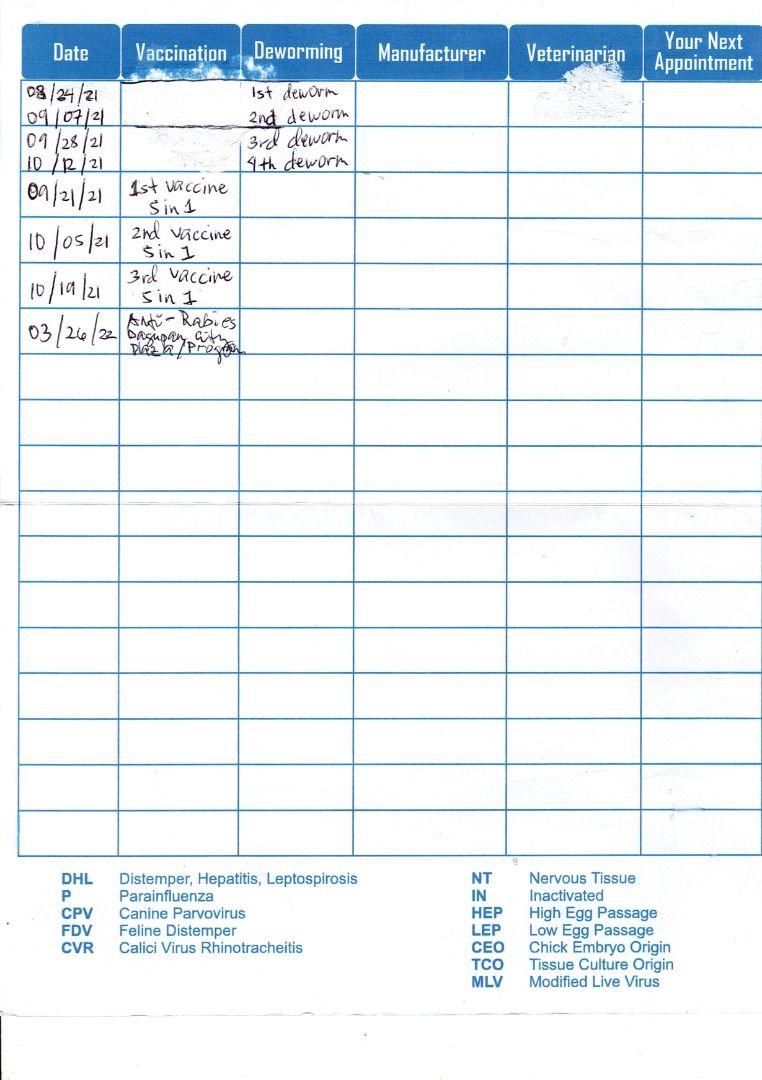 Date Vaccination Deworming Manufacturer Veterinarian Your Next Appointment
08/24/21 1st deworm
09/07/21 2nd deworm
09/28/21 3rd deworm
10/12/21 4th deworm
09/21/21 1st vaccine
5 in 1
10/05/21 2nd vaccine
5 in 1
10/19/21 3rd vaccine
5 in 1
03/26/22 Anti-Rabies
Dagupan City
Plaza/Program
DHL Distemper, Hepatitis, Leptospirosis
P Parainfluenza
CPV Canine Parvovirus
FDV Feline Distemper
CVR Calici Virus Rhinotracheitis
NT Nervous Tissue
IN Inactivated
HEP High Egg Passage
LEP Low Egg Passage
CEO Chick Embryo Origin
TCO Tissue Culture Origin
MLV Modified Live Virus